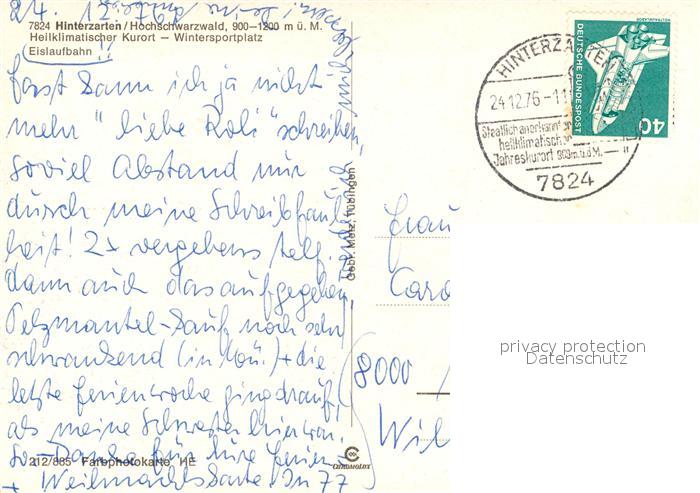 24. 12. 1976
7824 Hinterzarten / Hochschwarzwald, 900–1200 m ü. M.
Heilklimatischer Kurort – Wintersportplatz
Eislaufbahn !!
fast kann ich ja nicht
mehr "liebe Rosi" schreiben,
soviel Abstand nur
durch meine Schreibfaul
heit! 2x vergebens telf.
dann auch das aufgegeben
Pelzmantel-Kauf noch sehr
schwankend (in Mü.) + die
letzte Ferienwoche ging drauf,
als meine Schwester hier war.
So – Danke für Ihre Ferien
+ Weihnachtskarte In 77
212/885 Farbphotokarte HE
Gebr. Metz, Tübingen
CHROMOLUX
HINTERZARTEN
24.12.76-11
Staatlich anerkannter
heilklimatischer
Jahreskurort 900m.ü.d.M.
7824
DEUTSCHE BUNDESPOST
WELTRAUMLABOR
40
Frau
Caro
8000
Wil
privacy protection
Datenschutz